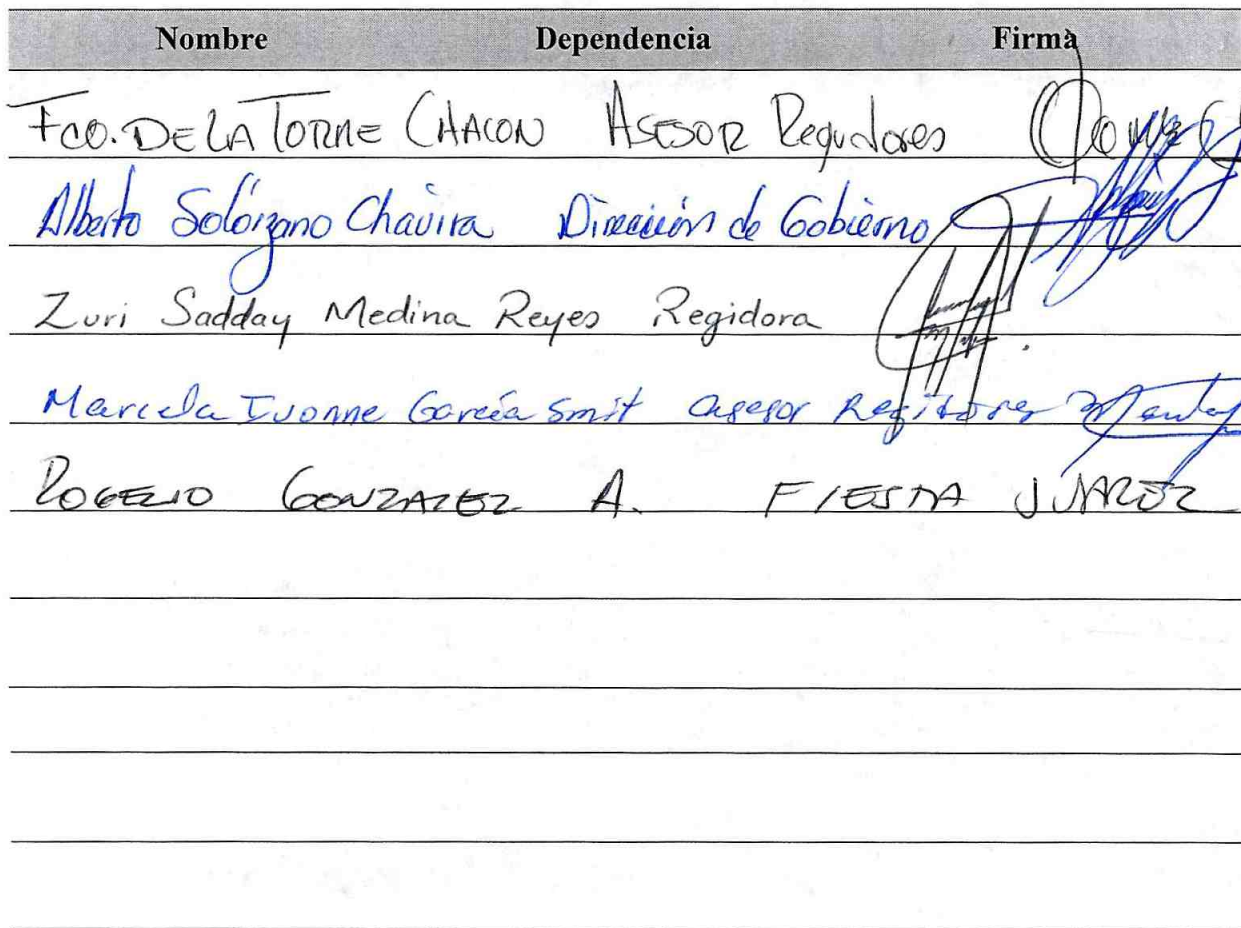 Nombre Dependencia Firma
Fco. DE LA TORRE CHACON ASESOR Regidores
Alberto Solórzano Chavira Dirección de Gobierno
Zuri Sadday Medina Reyes Regidora
Marcela Ivonne García Smit Asesor Regidores
ROGELIO GONZALEZ A. FIESTA JUAREZ